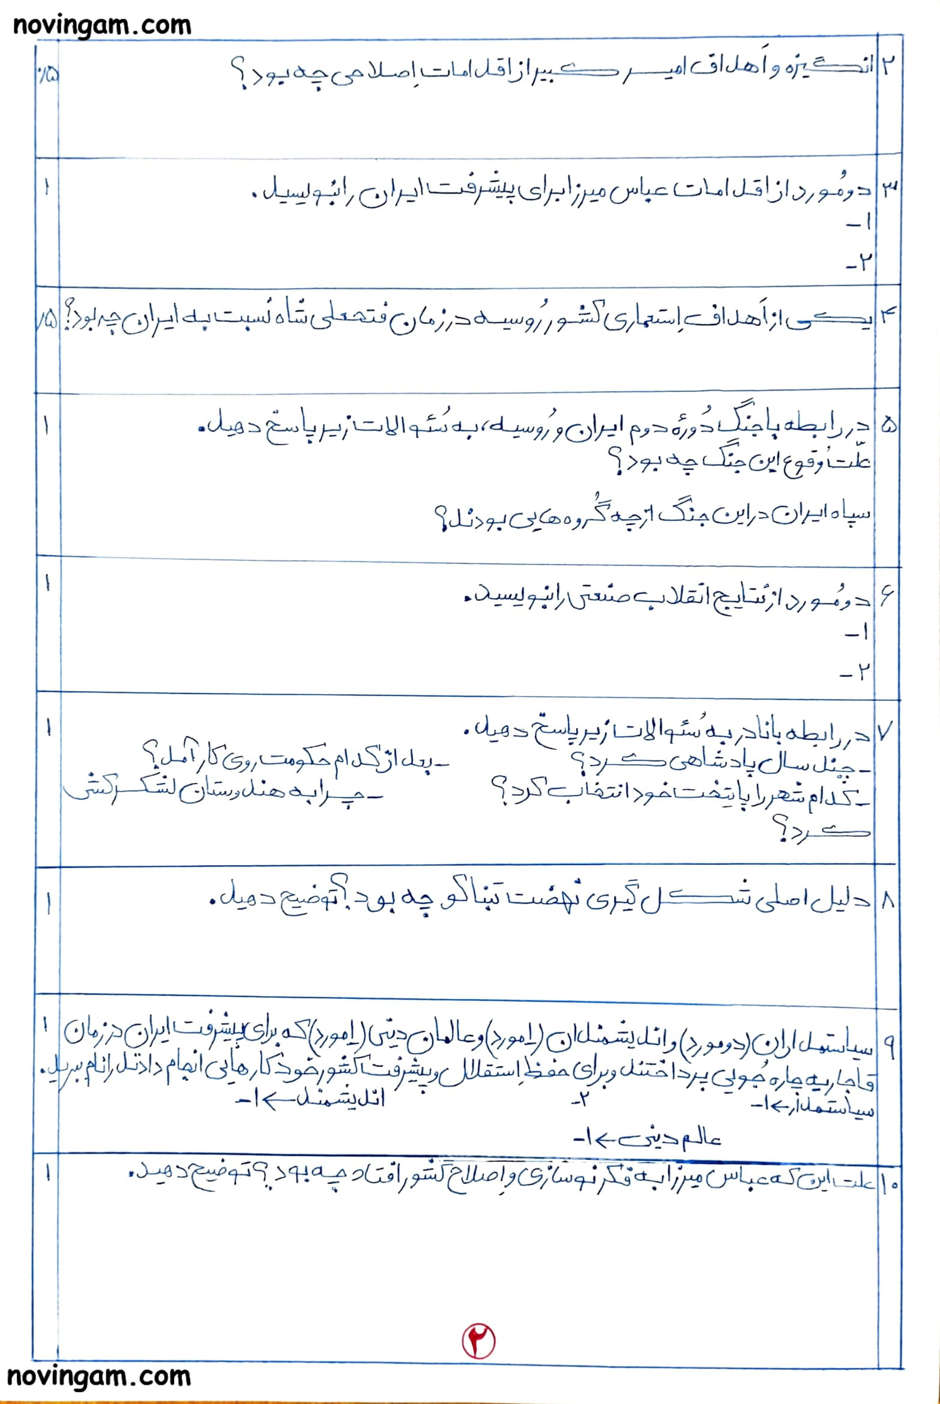 novingam.com
۲ انگیزه و اَهداف امیر کبیر از اقدامات اِصلاحی چه بود؟ ۰/۵
۳ دو مُورد از اقدامات عباس میرزا برای پیشرفت ایران را بنویسید. ۱
۱-
۲-
۴ یکی از اَهداف اِستعماری کشور رُوسیه در زمان فتحعلی شاه نسبت به ایران چه بود؟ ۰/۵
۵ در رابطه با جنگ دُورهٔ دوم ایران و رُوسیه، به سُئوالات زیر پاسخ دهید. ۱
علّت وُقوع این جنگ چه بود؟
سپاه ایران در این جنگ از چه گُروه هایی بودند؟
۶ دو مُورد از نتایج انقلاب صنعتی را بنویسید. ۱
۱-
۲-
۷ در رابطه با نادر به سُئوالات زیر پاسخ دهید. ۱
- چند سال پادشاهی کرد؟ - بعد از کدام حکومت روی کار آمد؟
- کدام شهر را پایتخت خود انتخاب کرد؟ - چرا به هندوستان لشکر کشی
کرد؟
۸ دلیل اصلی شکل گیری نهضت تنباکو چه بود؟ توضیح دهید. ۱
۹ سیاستمداران (دو مورد) و اندیشمندان (۱مورد) و عالمان دینی (۱مورد) که برای پیشرفت ایران در زمان ۱
قاجاریه چاره جُویی پرداختند و برای حفظ اِستقلال و پیشرفت کشور خود کارهایی انجام دادند را نام ببرید.
سیاستمدار ← ۱- ۲- اندیشمند ← ۱-
عالم دینی ← ۱-
۱۰ علت این که عباس میرزا به فکر نوسازی و اِصلاح کشور افتاد چه بود؟ توضیح دهید. ۱
۲
novingam.com